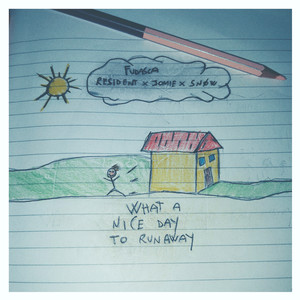 FUDASCA
RESIDENT x JOMIE x SNØW
WHAT A
NICE DAY
TO RUNAWAY